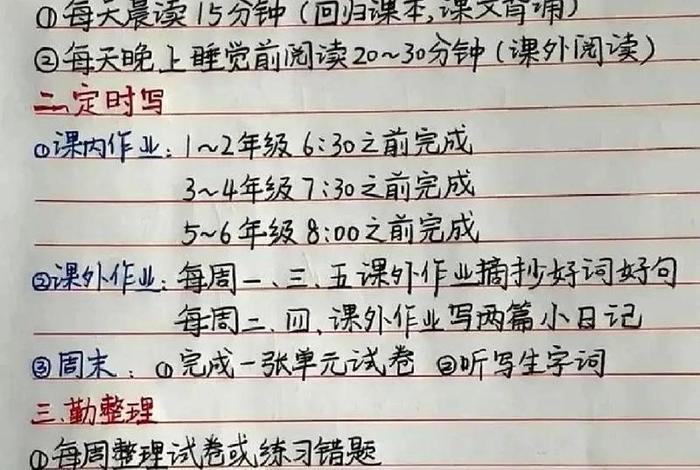 ①每天晨读15分钟(回归课本,课文背诵)
②每天晚上睡觉前阅读20~30分钟(课外阅读)
二、定时写
①课内作业:1~2年级 6:30之前完成
3~4年级 7:30之前完成
5~6年级 8:00之前完成
②课外作业:每周一、三、五课外作业摘抄好词好句
每周二、四、课外作业写两篇小日记
③周末:①完成一张单元试卷 ②听写生字词
三、勤整理
①每周整理试卷或练习错题